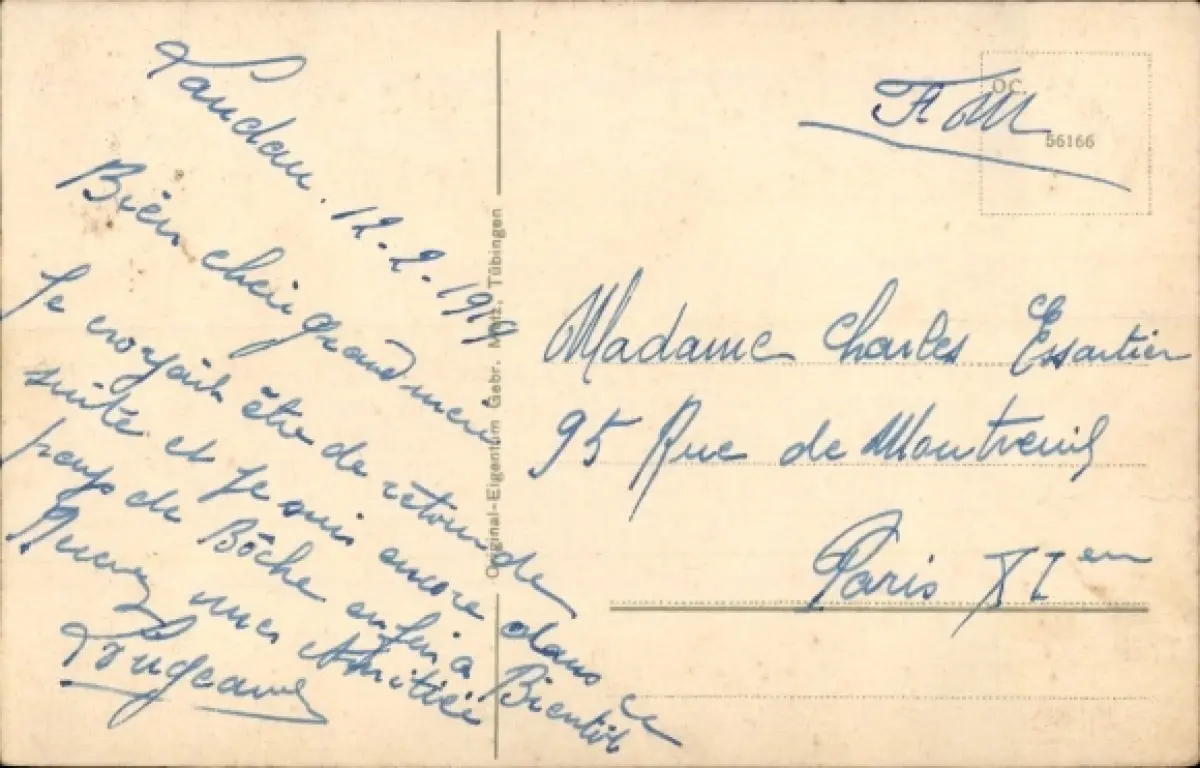 Landau. 12-2-1919
Bien cheir grand mere
Je croyait être de retour de
suite et je suis encore dans ce
pays de Bôche enfin a Bientôt
Recevez mes Amitiés
Original-Eigentum Gebr. Metz, Tübingen
F M
OC.
56166
Madame Charles Essartier
95 Rue de Montreuil
Paris XI em